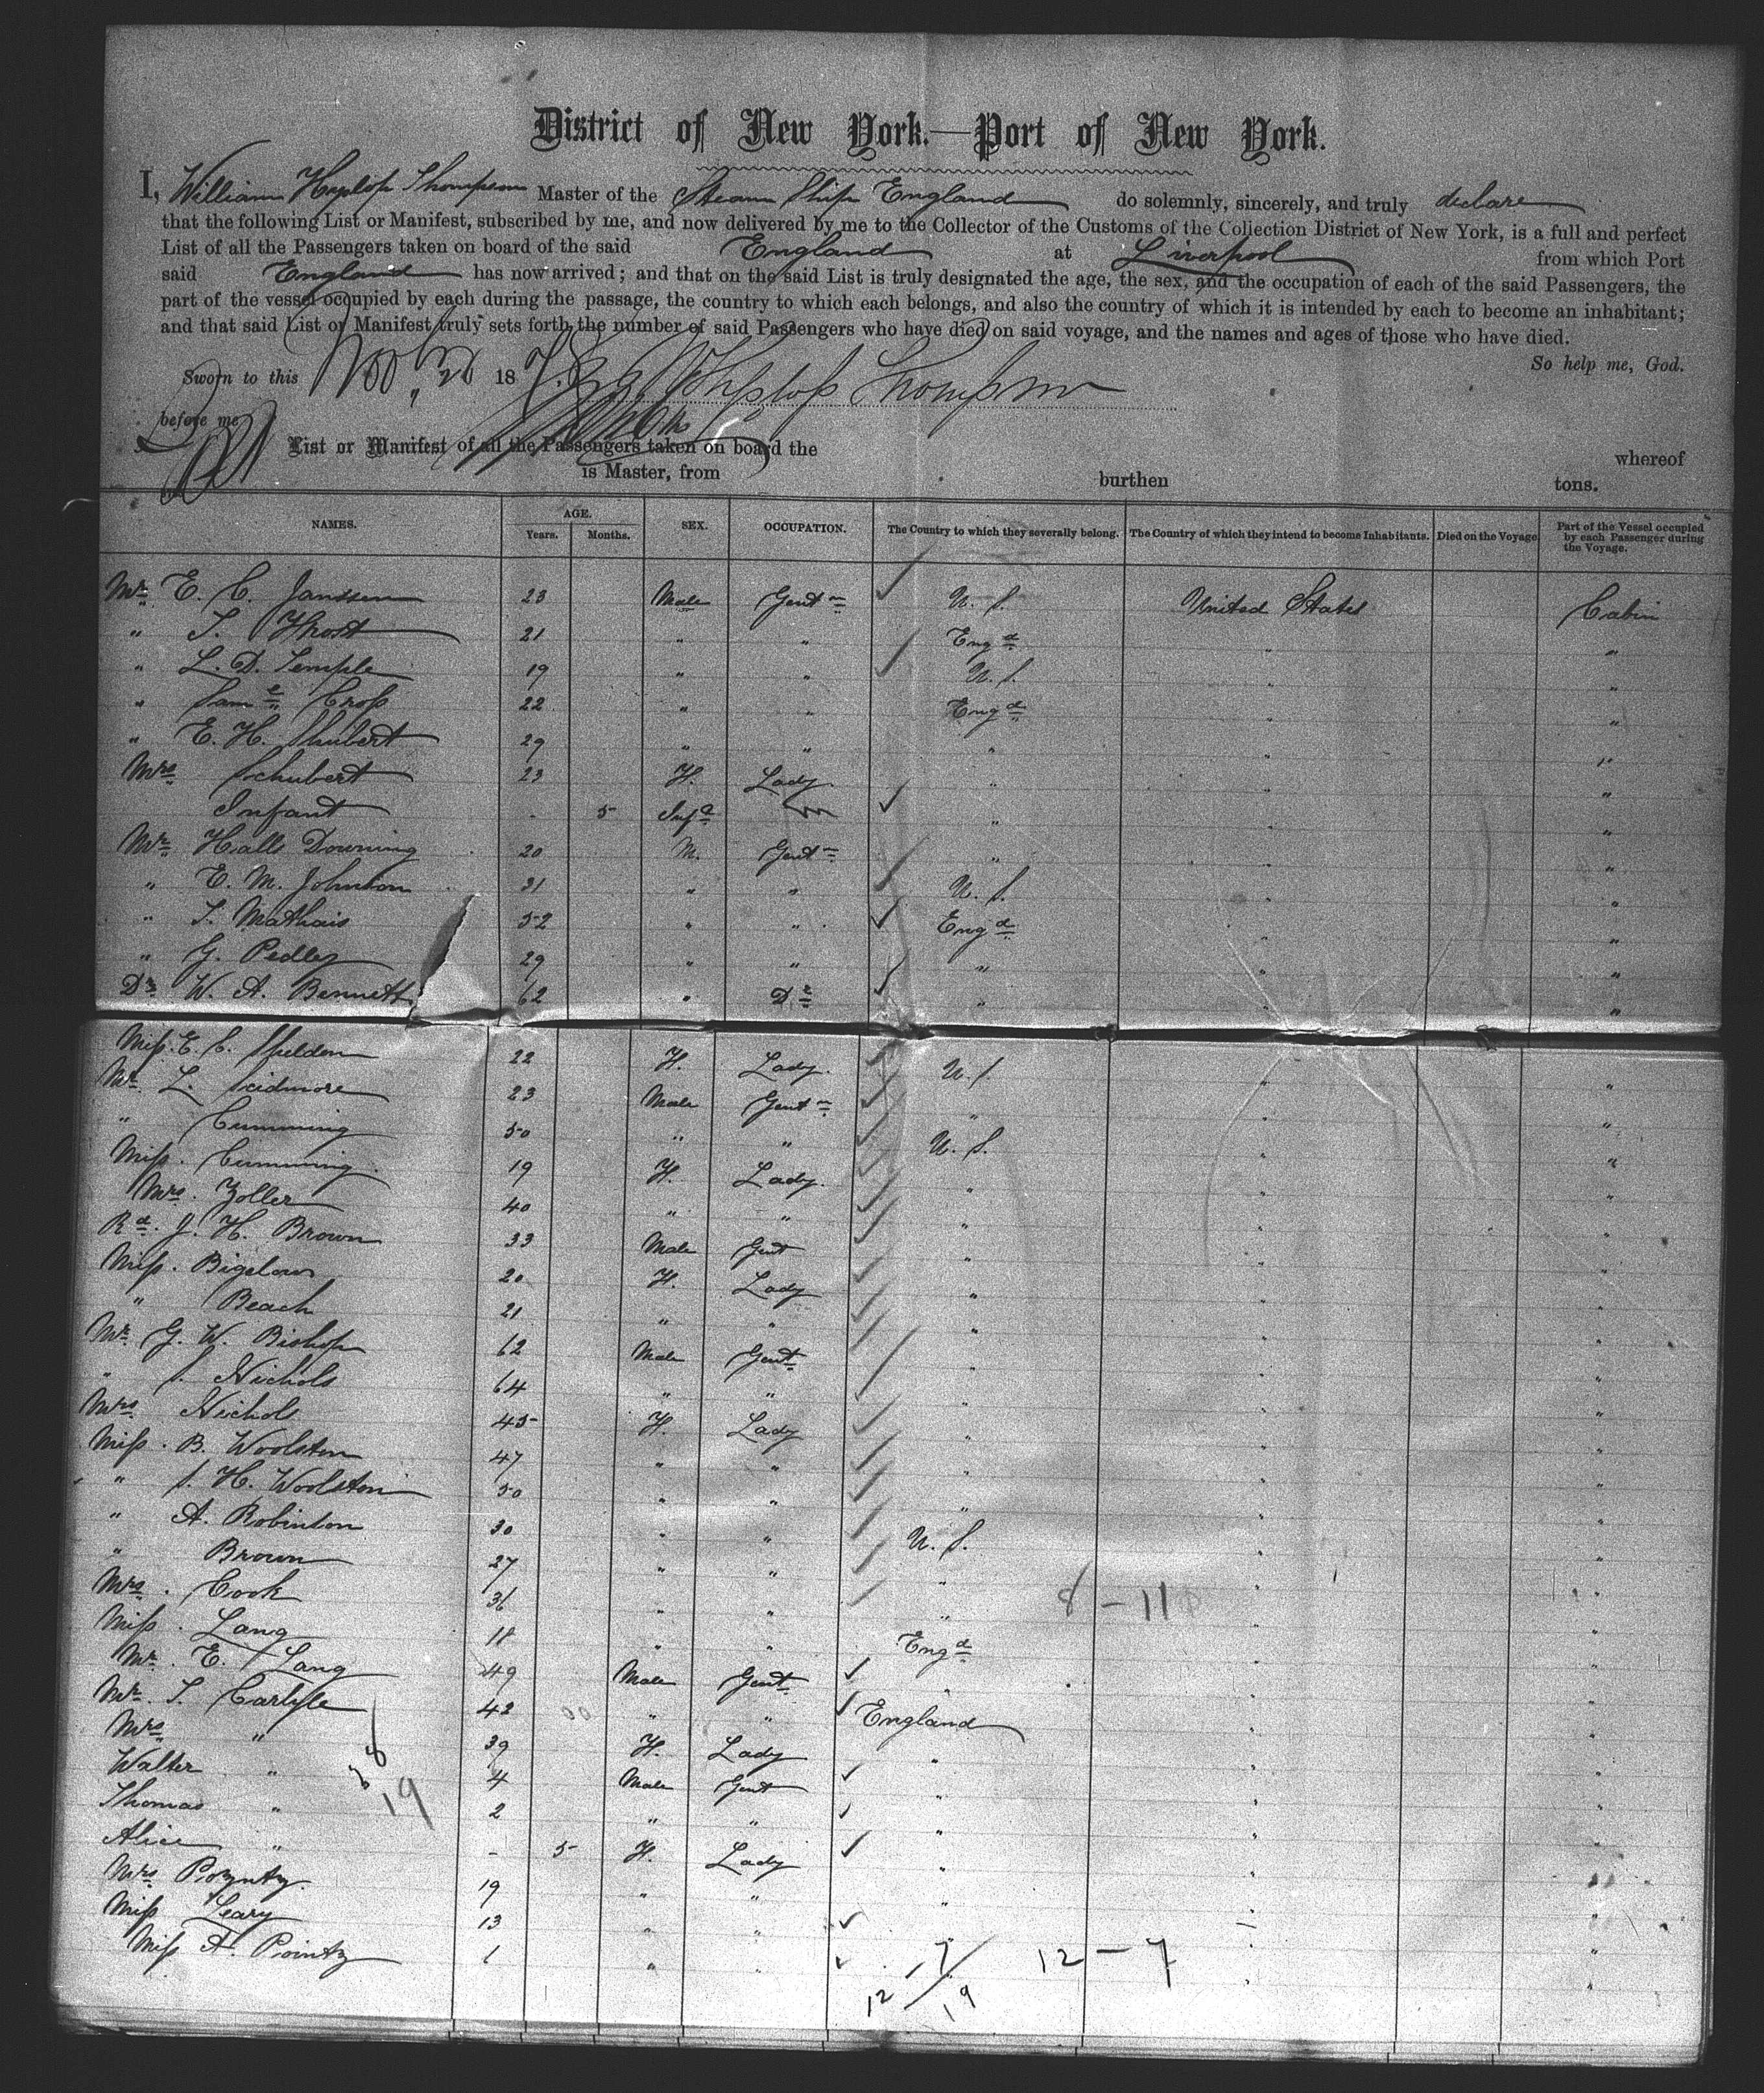 District of New York.—Port of New York.
I, William Hyslop Thompson Master of the Steam Ship England do solemnly, sincerely, and truly declare
that the following List or Manifest, subscribed by me, and now delivered by me to the Collector of the Customs of the Collection District of New York, is a full and perfect
List of all the Passengers taken on board of the said England at Liverpool from which Port
said England has now arrived; and that on the said List is truly designated the age, the sex, and the occupation of each of the said Passengers, the
part of the vessel occupied by each during the passage, the country to which each belongs, and also the country of which it is intended by each to become an inhabitant;
and that said List or Manifest truly sets forth the number of said Passengers who have died on said voyage, and the names and ages of those who have died.
So help me, God.
Sworn to this 18 Hyslop Thompson
before me
List or Manifest of all the Passengers taken on board the whereof
is Master, from burthen tons.
NAMES. AGE. Years. Months. SEX. OCCUPATION. The Country to which they severally belong. The Country of which they intend to become Inhabitants. Died on the Voyage Part of the Vessel occupied by each Passenger during the Voyage.
Mr. E. C. Janssen 23 Male Gentn U. S. United States Cabin
" 21 " " Engd " "
" L. D. Temple 19 " " U. S. " "
" Saml Cross 22 " " Engd " "
" E. H. Shubert 29 " " " " "
Mrs Schubert 23 F. Lady " " "
Infant - 5 Inft " " "
Mr. Halls Downing 20 M. Gentn " " "
" E. M. Johnson 31 " " U. S. " "
" T. Mathais 52 " " Engd " "
" G. Pedley 29 " " " " "
Dr W. A. Bennett 62 " Dr " " "
Miss. E. C. Sheldon 22 F. Lady. U. S. " "
Mr. L. Scidmore 23 Male Gentn " " "
" Cumming 50 " " U. S. " "
Miss. Cumming. 19 F. Lady. " " "
Mrs. Zoller 40 " " " " "
Rd. J. H. Brown 33 Male Gent " " "
Miss. Bigelow 20 F. Lady " " "
" Beach 21 " " " " "
Mr. G. W. Bishop 62 Male Gent " " "
" S. Nichols 64 " " " " "
Mrs. Nichols 45 F. Lady " " "
Miss. B. Woolston 47 " " " " "
" S. H. Woolston 50 " " " " "
" A. Robinson 30 " " U. S. " "
" Brown 27 " " " " "
Mrs. Cook 36 " " " 8 - 11 " "
Miss. Lang 18 " " Engd " "
Mr. E. Lang 49 Male Gent. " " "
Mr. T. Carlyle 42 " " England " "
Mrs. " 39 F. Lady " " "
Walter " 4 Male Gent " " "
Thomas " 19 2 " " " " "
Alice " - 5 F. Lady " " "
Mrs. Poyntz. 19 " " " " "
Miss Leary 13 " " " " "
Miss A. Pointz 1 " " " "
7 12 - 7
12 / 19